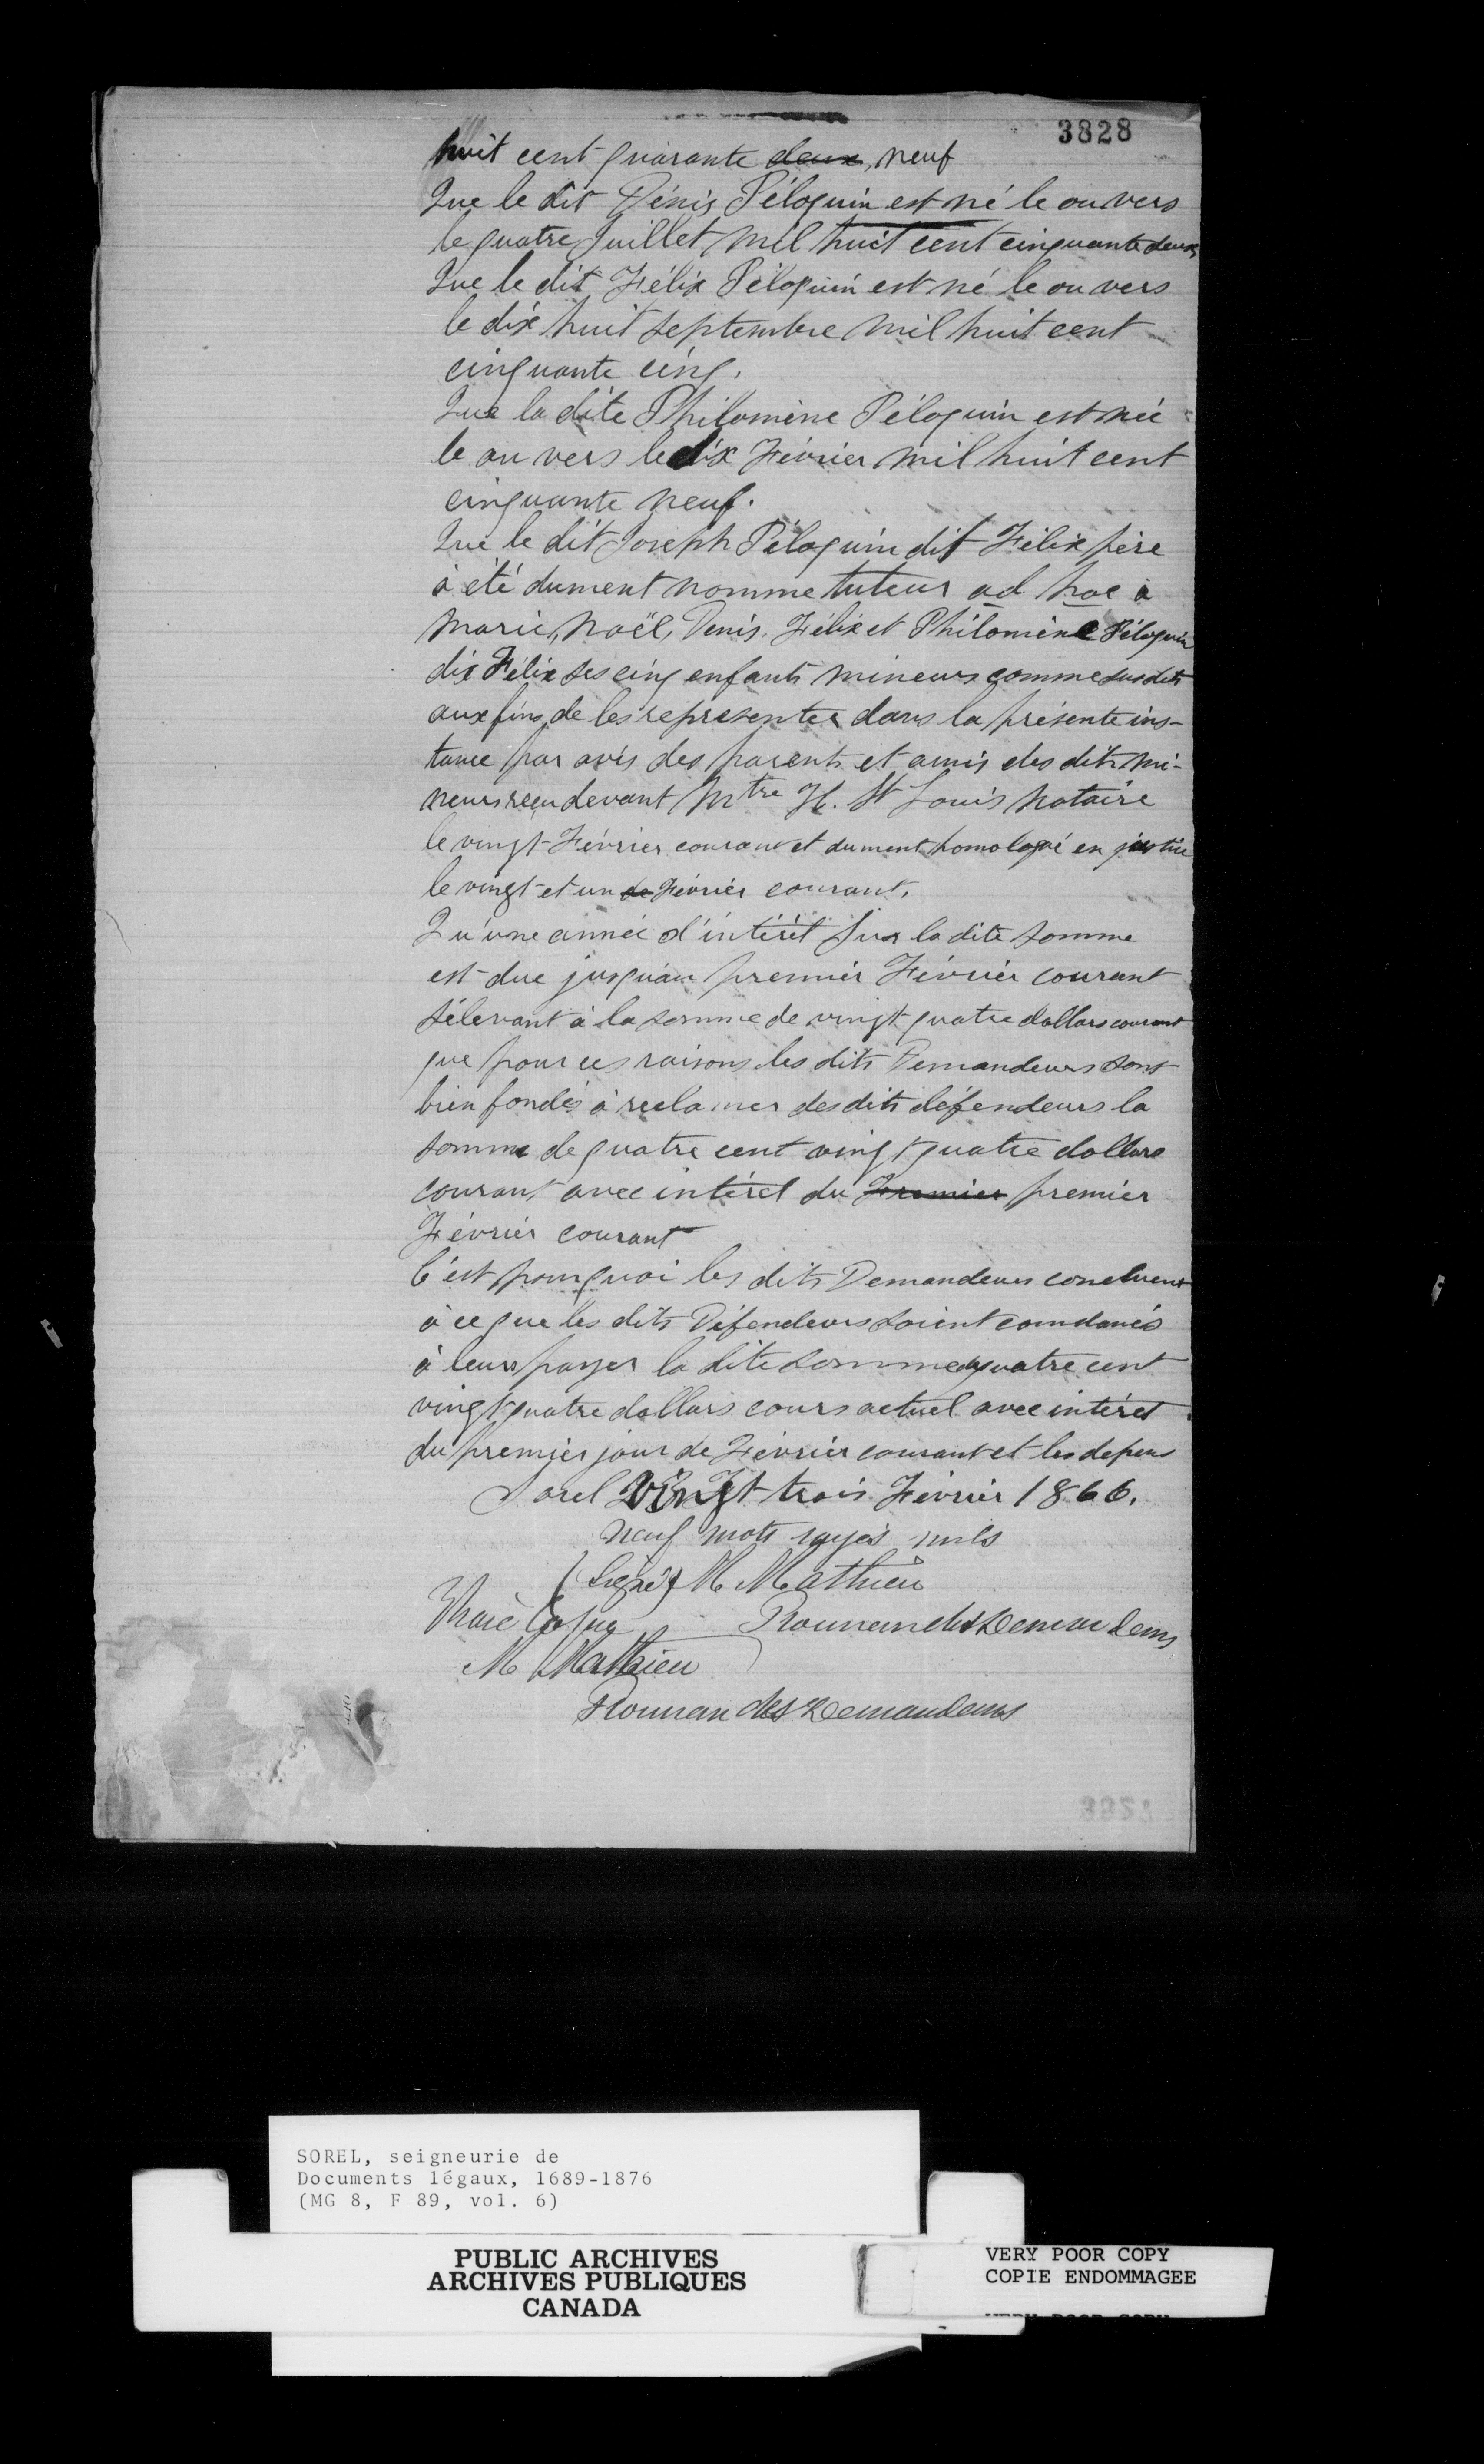 3828
huit cent quarante deux, neuf
Que le dit Dénis Péloquin est né le ou vers
le quatre Juillet mil huit cent cinquante deux
Que le dit Félix Péloquin est né le ou vers
le dix huit septembre mil huit cent
cinquante cinq.
Que la dite Philomène Péloquin est née
le ou vers le dix Février mil huit cent
cinquante neuf.
Que le dit Joseph Péloquin dit Félix père
à été dument nomme tuteur ad hoc à
Marie, Noël, Denis, Félix et Philomène Péloquin
dit Félix ses cinq enfants mineurs comme susdits
aux fins de les représenter dans la présente ins-
tance par avis des parents et amis des dits mi-
neurs reçu devant Mtre H. St Louis Notaire
le vingt Février courant et dument homologué en justice
le vingt et un de Février courant.
Qu'une année d'intérêt sur la dite somme
est due jusqu'au premier Février courant
s'élevant à la somme de vingt quatre dollars courant
que pour ces raisons les dits Demandeurs sont
bien fondés à reclamer des dits défendeurs la
somme de quatre cent vingt quatre dollars
courant avec intéret du Fremier premier
Février courant
C'est pourquoi les dits Demandeurs concluent
à ce que les dits Défendeurs soient comdanés
à leurs payer la dite somme de quatre cent
vingt quatre dollars cours actuel avec intéret
du premier jour de Février courant et les depens
Sorel Vingt trois Février 1866.
Neuf mots rayés nuls
(Signé) M Mathieu
Vraie Copie Procureur des Demandeurs
M Mathieu
Procureur des Demandeurs
3827
SOREL, seigneurie de
Documents légaux, 1689-1876
(MG 8, F 89, vol. 6)
PUBLIC ARCHIVES
ARCHIVES PUBLIQUES
CANADA
VERY POOR COPY
COPIE ENDOMMAGEE
VERY POOR COPY